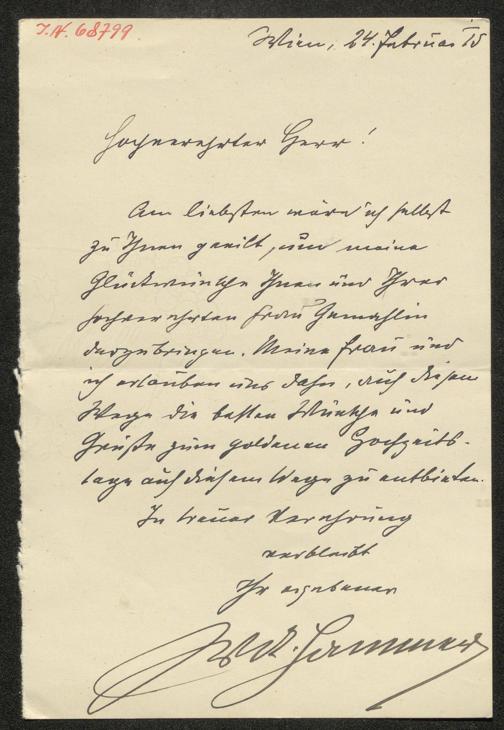 I.N. 68799
Wien, 24. Februar 15
Hochverehrter Herr!
Am liebsten wäre ich selbst
zu Ihnen geeilt, um meine
Glückwünsche Ihnen und Ihrer
hochverehrten Frau Gemahlin
darzubringen. Meine Frau und
ich erlauben uns daher, auf diesem
Wege die besten Wünsche und
Grüße zum goldenen Hochzeits-
tage auf diesem Wege zu entbieten.
In treuer Verehrung
verbleibt
Ihr ergebener
Hammer